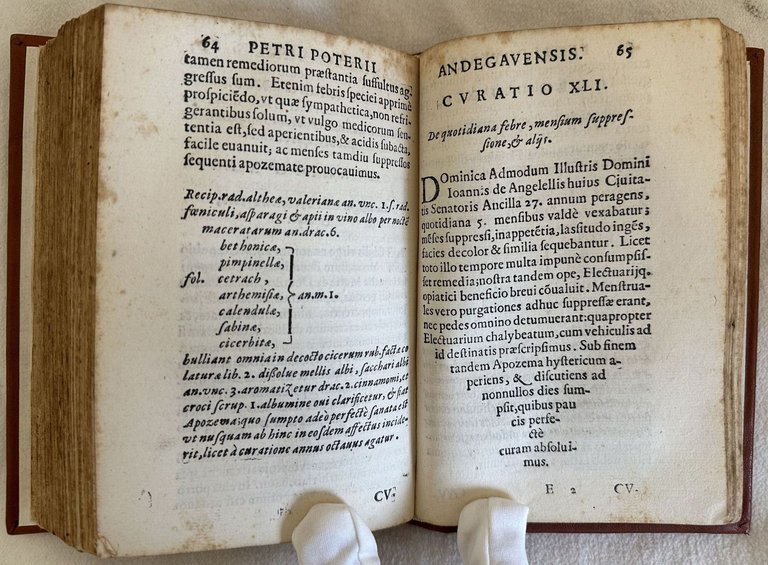 64 PETRI POTERII
tamen remediorum præstantia suffultus ag-
gressus sum. Etenim febris speciei apprimè
prospiciẽdo, vt quæ sympathetica, non refri
gerantibus solum, vt vulgo medicorum sen-
tentia est, sed aperientibus, & acidis subacta,
facile euanuit; ac menses tamdiu suppressos
sequenti apozemate prouocauimus.
Recip. rad. altheæ, valerianæ an. vnc. 1. s. rad.
fœniculi, asparagi & apii in vino albo per noctẽ
maceratarum an. drac. 6.
bethonicæ,
pimpinellæ,
fol. cetrach,
arthemisiæ, an. m. 1.
calendulæ,
sabinæ,
cicerbitæ,
bulliant omnia in decocto cicerum rub. facta co
laturæ lib. 2. dißolue mellis albi, sacchari albi
an. vnc. 3. aromatizetur drac. 2. cinnamomi, et
croci scrup. 1. albumine oui clarificetur, & fiat
Apozema; quo sumpto adeò perfectè sanata est
vt nusquam ab hinc in eosdem affectus incide-
rit, licet à curatione annus octauus agatur.
CV-
ANDEGAVENSIS. 65
CVRATIO XLI.
De quotidiana febre, mensium suppres-
sione, & alijs.
Dominica Admodum Illustris Domini
Ioannis de Angelellis huius Ciuita-
tis Senatoris Ancilla 27. annum peragens,
quotidiana 5. mensibus valdè vexabatur;
mẽses suppressi, inappetẽtia, lassitudo ingẽs,
facies decolor & similia sequebantur. Licet
toto illo tempore multa impunè consumpsis-
set remedia; nostra tandem ope, Electuarijq.
opiatici beneficio breui cõualuit. Menstrua-
les vero purgationes adhuc suppressæ erant,
nec pedes omnino detumuerant: quapropter
Electuarium chalybeatum, cum vehiculis ad
id destinatis præscripsimus. Sub finem
tandem Apozema hystericum a-
periens, & discutiens ad
nonnullos dies sum-
psit, quibus pau
cis perfe-
ctè
curam absolui-
mus.
E 2 CV-